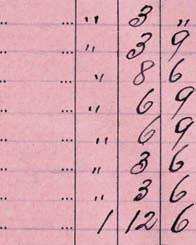 ... ... " 3 "
... ... " 3 9
... ... " 8 6
... ... " 6 9
... ... " 6 9
... ... " 3 6
... ... " 3 6
... ... 1 12 6